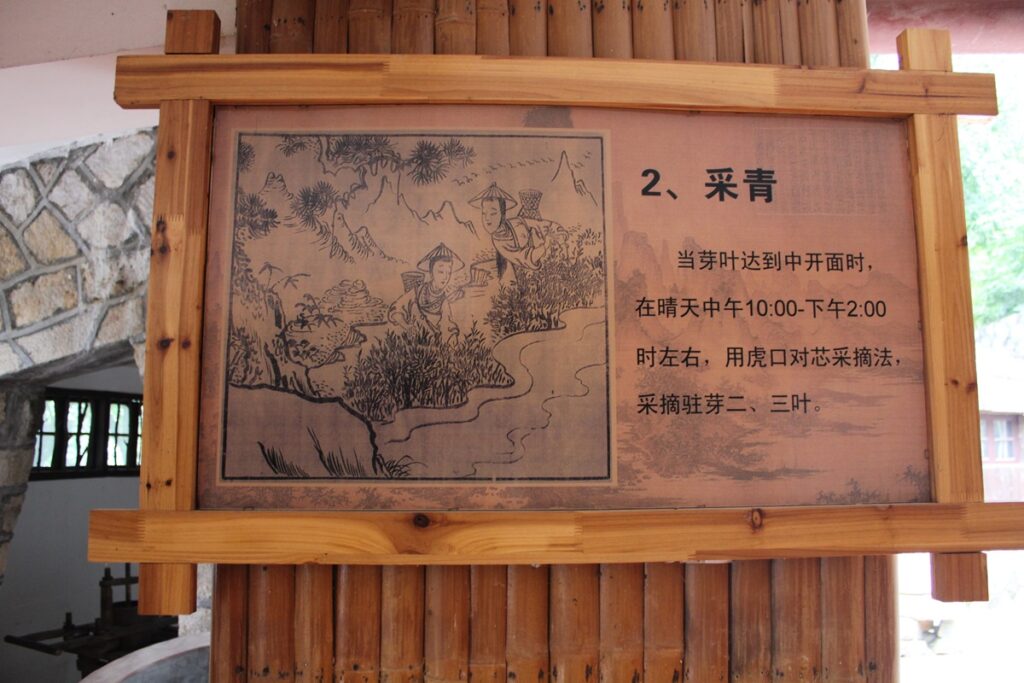 2、采青
当芽叶达到中开面时，
在晴天中午10:00-下午2:00
时左右，用虎口对芯采摘法，
采摘驻芽二、三叶。